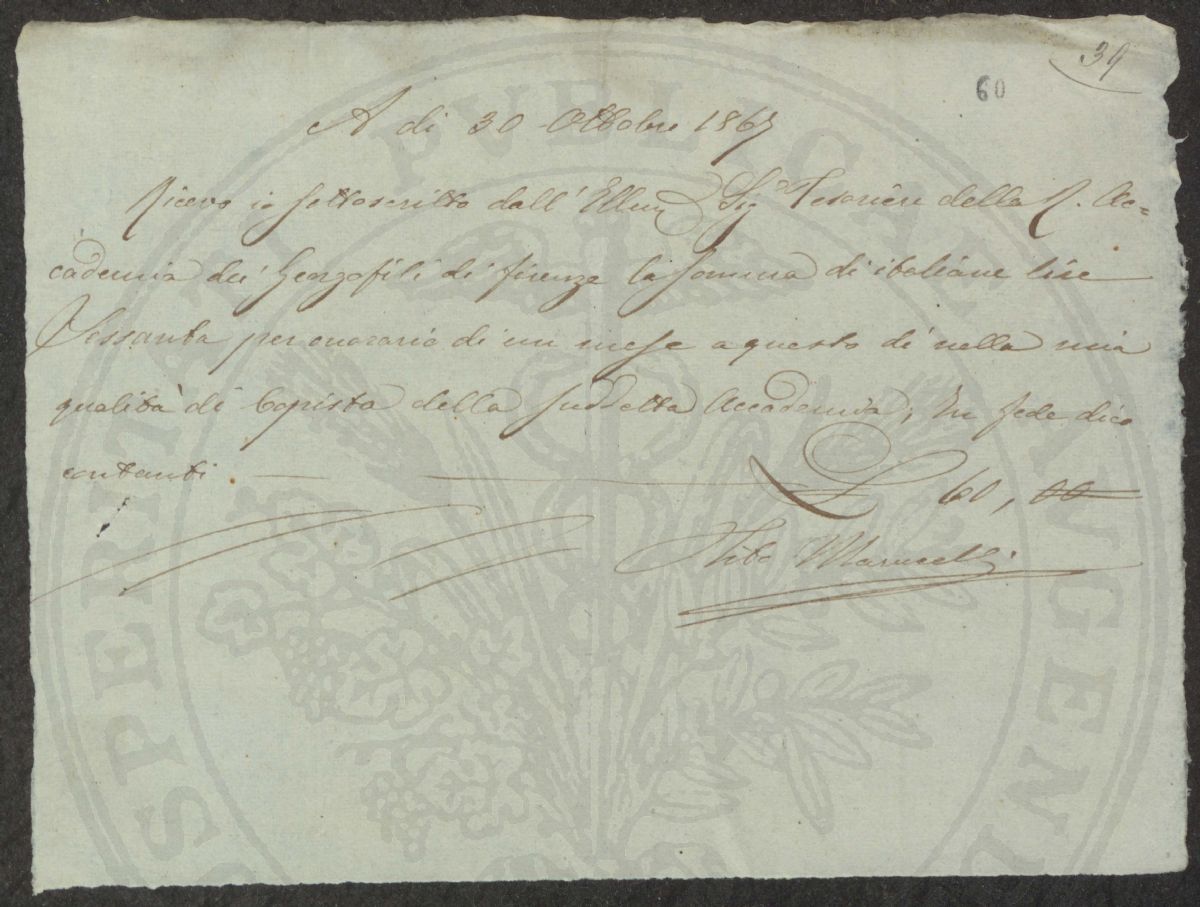 39
60
A di 30 Ottobre 1867
Ricevo io sottoscritto dall' Sig. Tesoriere della R. Ac=
cademia dei Georgofili di Firenze la somma di italiane lire
Sessanta per onorario di un mese a questo dì nella mia
qualità di Copista della suddetta Accademia; In fede dico
contanti L 60,00
Marucelli
PROSPERITATI PVBLICAE AVGENDAE